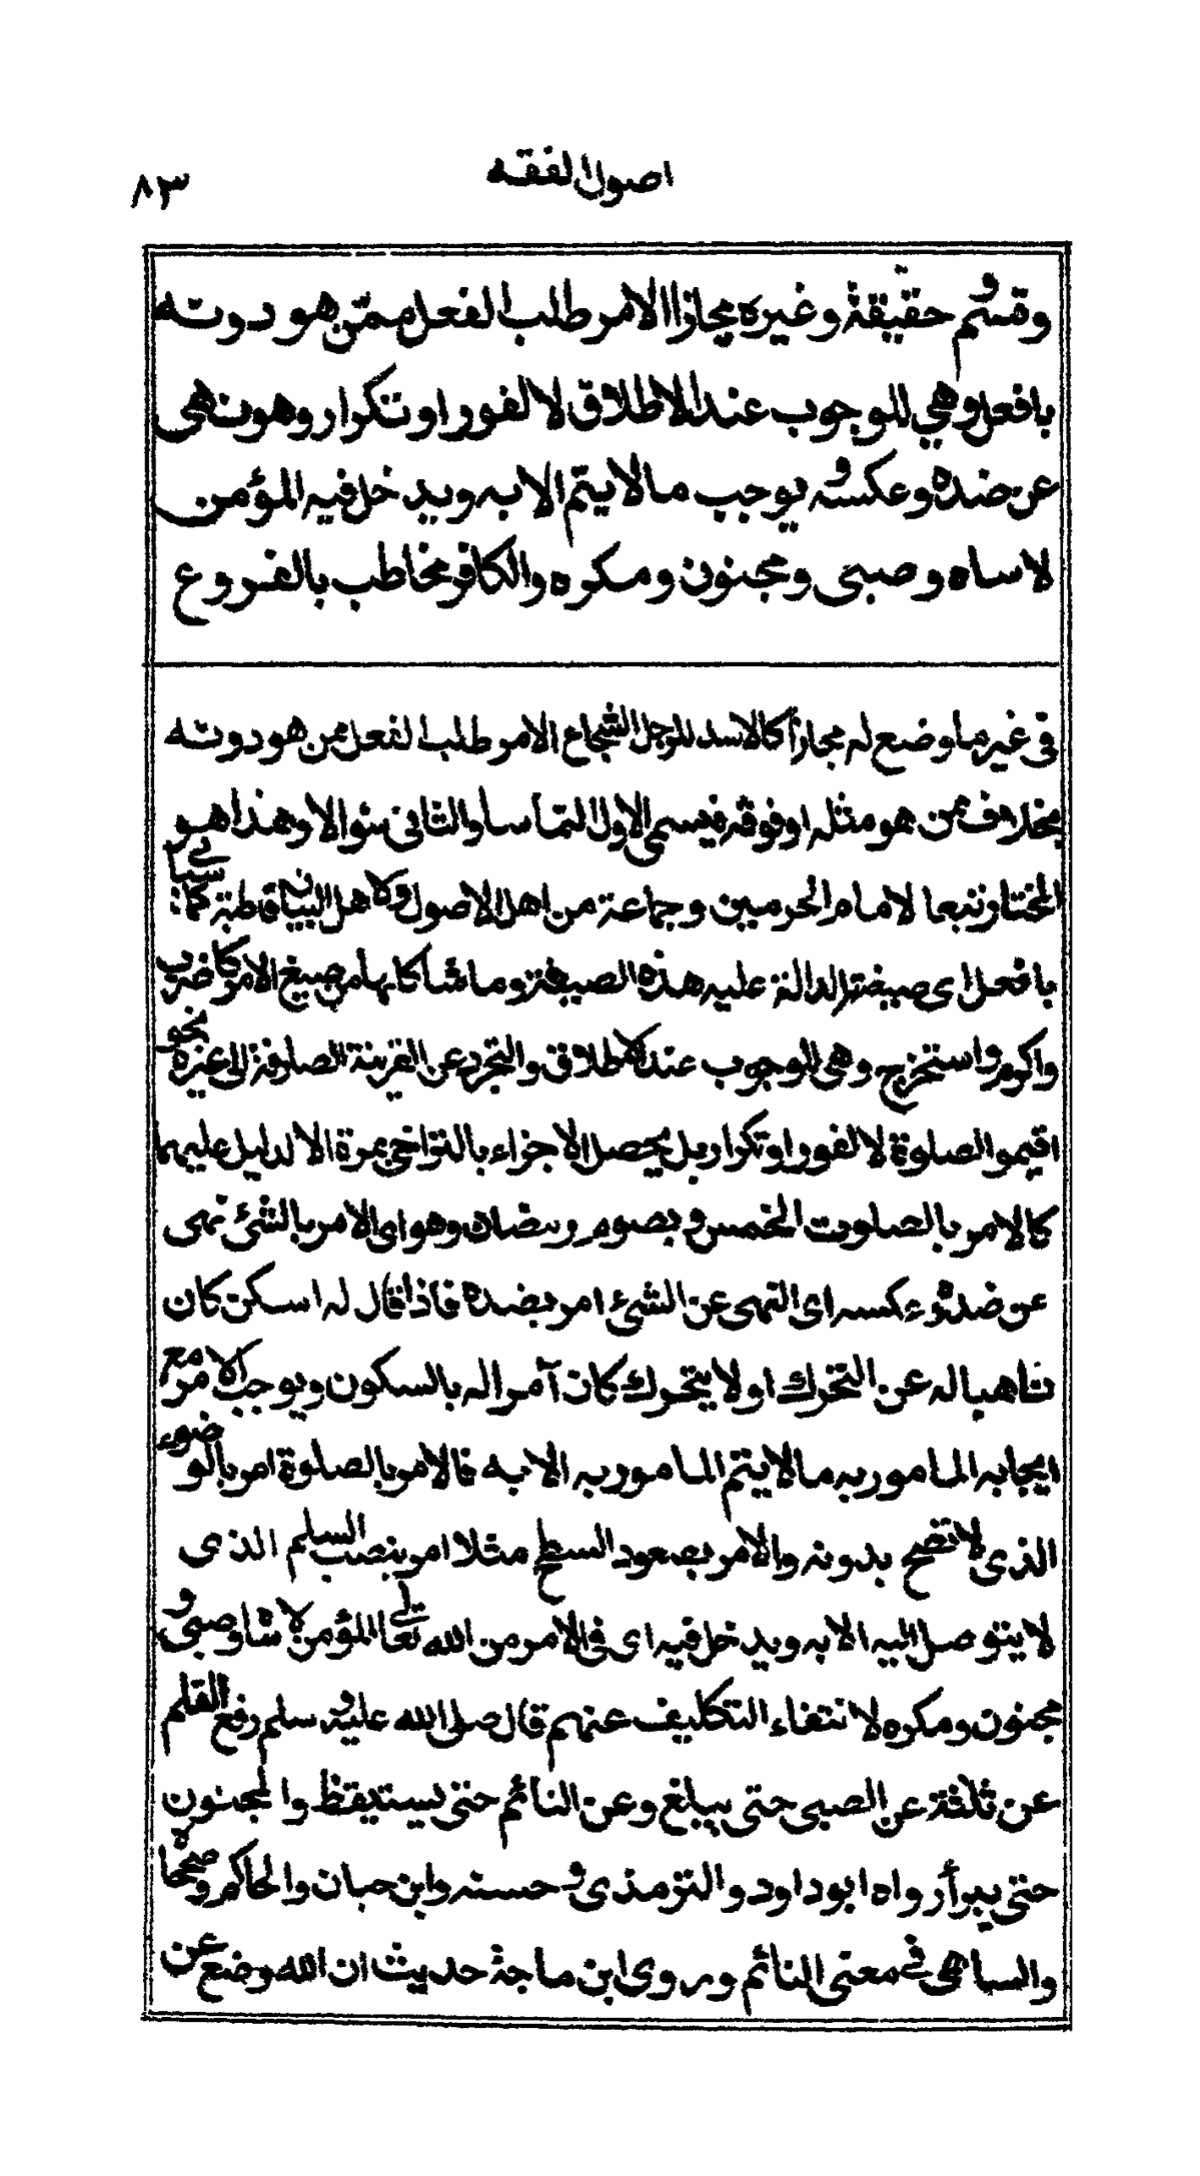 اصول الفقه
٨٣
وقسم حقيقة وغيره مجازا الامر طلب الفعل ممن هو دونه
بافعل وهي للوجوب عند الاطلاق لا لفور او تكرار وهو نهى
عن ضده وعكسه ويوجب ما لا يتم الا به ويدخل فيه المؤمن
لا ساه وصبى ومجنون ومكره والكافر مخاطب بالفروع
فى غير ما وضع له مجازا كالاسد للرجل الشجاع الامر طلب الفعل ممن هو دونه
بخلاف ممن هو مثله او فوقه فيسمى الاول التماسا والثانى سوالا وهذا هو
المختار تبعا لامام الحرمين وجماعة من اهل الاصول ولاهل البيان قاطبة كما سياتى
بافعل اى صيغته الدالة عليه هذه الصيغة وما شاكلها من صيغ الامر كاضرب
واكرم واستخرج وهى للوجوب عند الاطلاق والتجرد عن القرينة الصارفة الى غيره نحو
اقيموا الصلوة لا لفور او تكرار بل يحصل الاجزاء بالتراخى بمرة الا لدليل عليهما
كالامر بالصلوت الخمس وبصوم رمضان وهو اى الامر بالشئ نهى
عن ضده وعكسه اى النهى عن الشئ امر بضده فاذا قال له اسكن كان
ناهيا له عن التحرك او لا يتحرك كان آمرا له بالسكون ويوجب الامر مع
ايجابه المامور به ما لا يتم المامور به الا به فالامر بالصلوة امر بالوضوء
الذى لا تصح بدونه والامر بصعود السطح مثلا امر بنصب السلم الذى
لا يتوصل اليه الا به ويدخل فيه اى فى الامر من الله تعالى المؤمن لا ساه وصبى و
مجنون ومكره لانتفاء التكليف عنهم قال صلى الله عليه وسلم رفع القلم
عن ثلثة عن الصبى حتى يبلغ وعن النائم حتى يستيقظ والمجنون
حتى يبرأ رواه ابو داود والترمذى وحسنه وابن حبان والحاكم وصححاه
والساهى فى معنى النائم وروى ابن ماجة حديث ان الله وضع عن